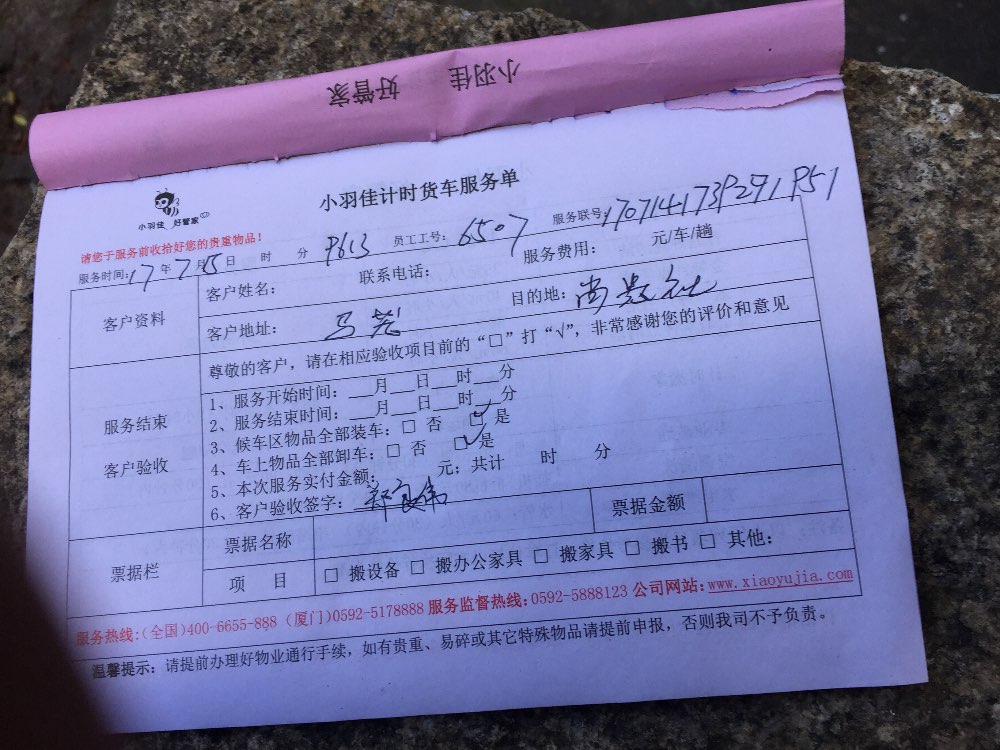 小羽佳 好管家
小羽佳 好管家
小羽佳计时货车服务单
请您于服务前收拾好您的贵重物品！
服务时间：17年7月15日 时 分 9613 员工工号：6507 服务联号：
客户资料
客户姓名： 联系电话： 服务费用： 元/车/趟
客户地址： 目的地：
尊敬的客户，请在相应验收项目前的“□”打“√”，非常感谢您的评价和意见
服务结束
客户验收
1、服务开始时间：___月___日___时___分
2、服务结束时间：___月___日___时___分
3、候车区物品全部装车：□ 否 ☑ 是
4、车上物品全部卸车：□ 否 ☑ 是
5、本次服务实付金额： 元；共计 时 分
6、客户验收签字：
票据栏
票据名称 票据金额
项 目 □ 搬设备 □ 搬办公家具 □ 搬家具 □ 搬书 □ 其他：
服务热线:(全国)400-6655-888 (厦门)0592-5178888 服务监督热线:0592-5888123 公司网站:www.xiaoyujia.com
温馨提示：请提前办理好物业通行手续，如有贵重、易碎或其它特殊物品请提前申报，否则我司不予负责。